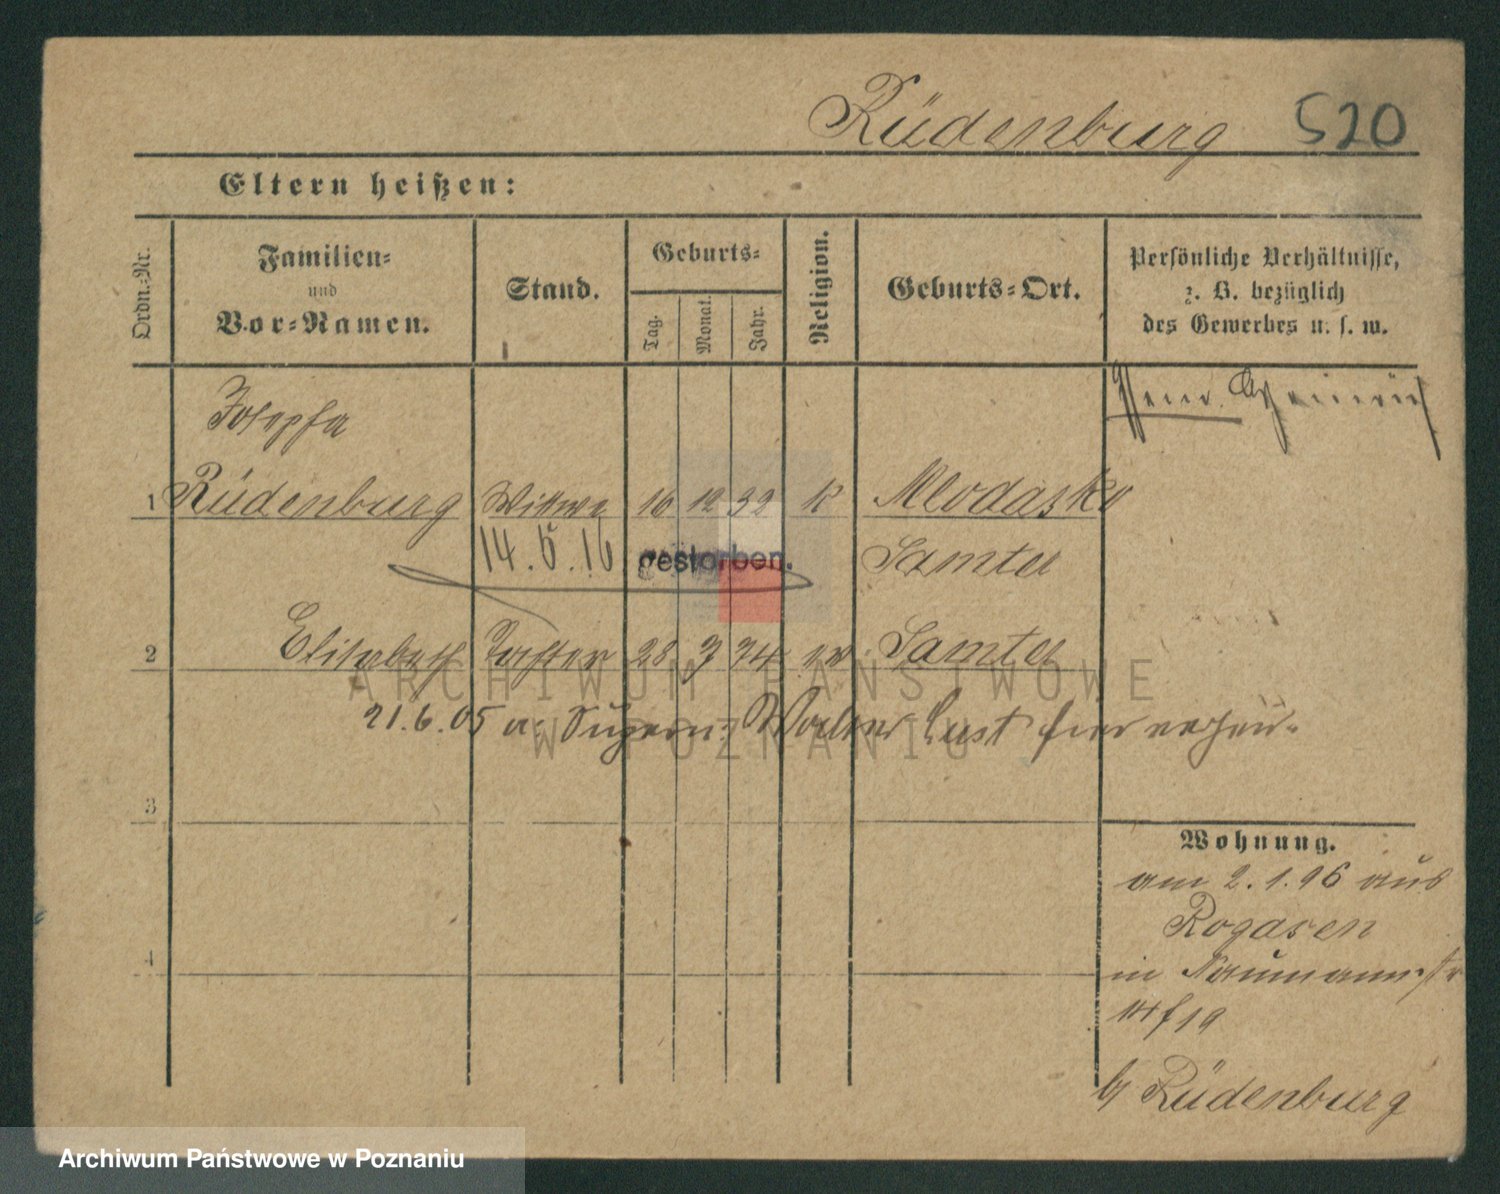 Rüdenburg 520
Eltern heißen:
Ordn.-Nr.
Familien-
und
Vor-Namen.
Stand.
Geburts-
Tag.
Monat.
Jahr.
Religion.
Geburts-Ort.
Persönliche Verhältnisse,
z. B. bezüglich
des Gewerbes u. s. w.
Josepha
1 Rüdenburg Wittwe 16 12 32 k Mlodasko
14.5.16 gestorben. Samter
2 Elisabeth Tochter 28 3 74 Samter
21.6.05 Walter Lust
3
4
Wohnung.
am 2.1.96 aus
Rogasen
in Naumannstr
19
b/ Rüdenburg
ARCHIWUM PAŃSTWOWE
W POZNANIU
Archiwum Państwowe w Poznaniu